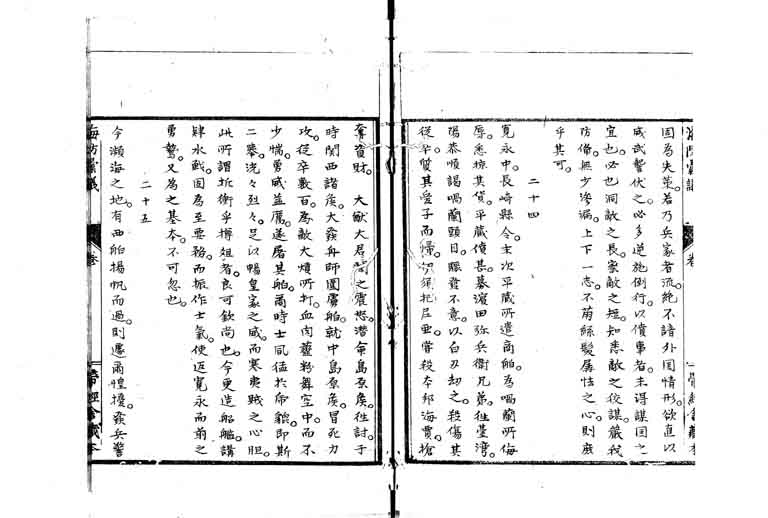 固為失策。若乃兵家者流。絶不諳外国情形。欲直以
威武讋伏之。必多逆施倒行。以僨事者。未得謀国之
宜也。必也洞敵之長。察敵之短。知悉敵之伎謀。厳我
防備。無少滲漏。上下一志。不萌絲髮孱怯之心。則庶
乎其可。
二十四
寛永中。長崎縣令。主次平蔵所遣商舶。為喎蘭所侮
辱。悉掠其貨。平蔵憤甚。募濱田弥兵衛兄弟。往臺湾。
陽恭順謁喎蘭頭目。賺發不意。以白刃劫之。殺傷其
従卒。質其愛子而帰。
嘗殺本邦海賈。搶
奪資財。大猷大君聞之震怒。潜命島原矦。往討。于
時関西諸矦。大發舟師圍虜舶。就中島原矦。冒死力
攻。従卒數百。為敵大熕所打。血肉虀粉舞空中。而不
少惴。勇威益厲。遂屠其舶。爾時士風猛於席貔。即斯
二挙。洸々烈々。足以暢皇家之威。而寒夷賊之心胆。
此所謂折衝乎樽俎者。良可欽尚也。今更造船艦。講
肄水戦。固為至要務。而振作士氣。使返寛永而前之
勇驁。又為之基本。不可忽也。
二十五
今瀕海之地。有西舶揚帆而過。則遽爾惶擾。發兵警
海防彙議
巻